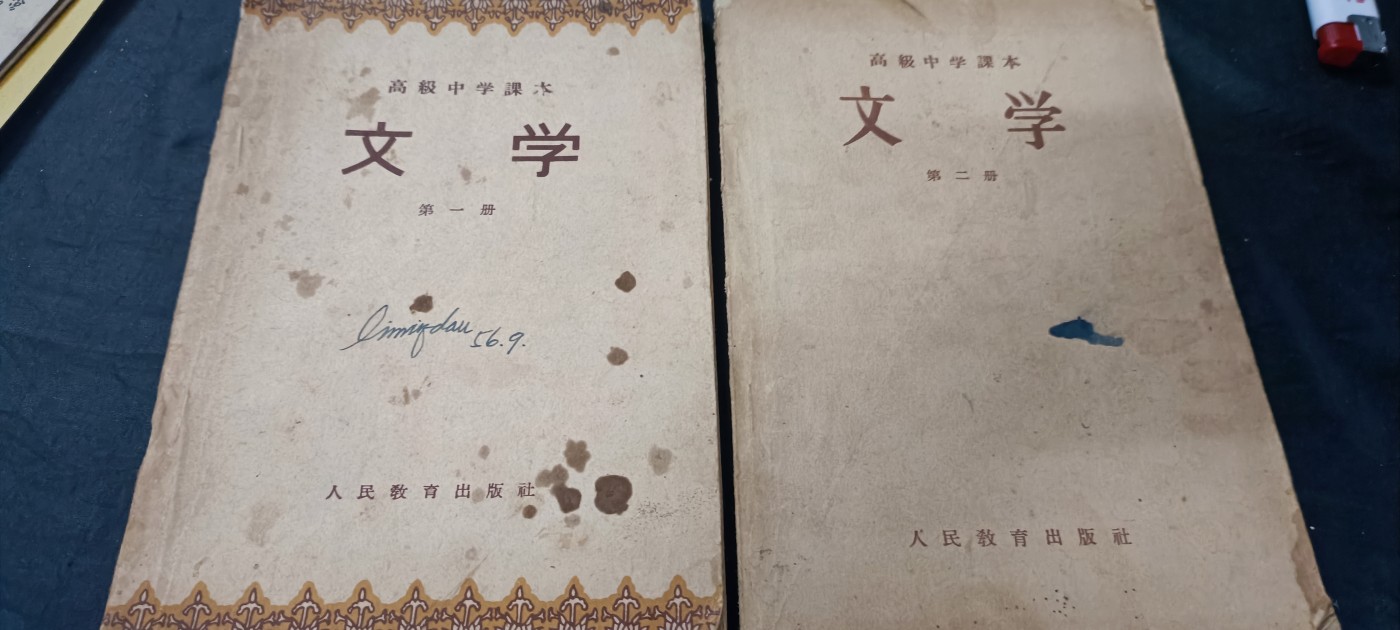 高級中学課本
文学
第一册
56.9.
人民教育出版社
高級中学課本
文学
第二册
人民教育出版社